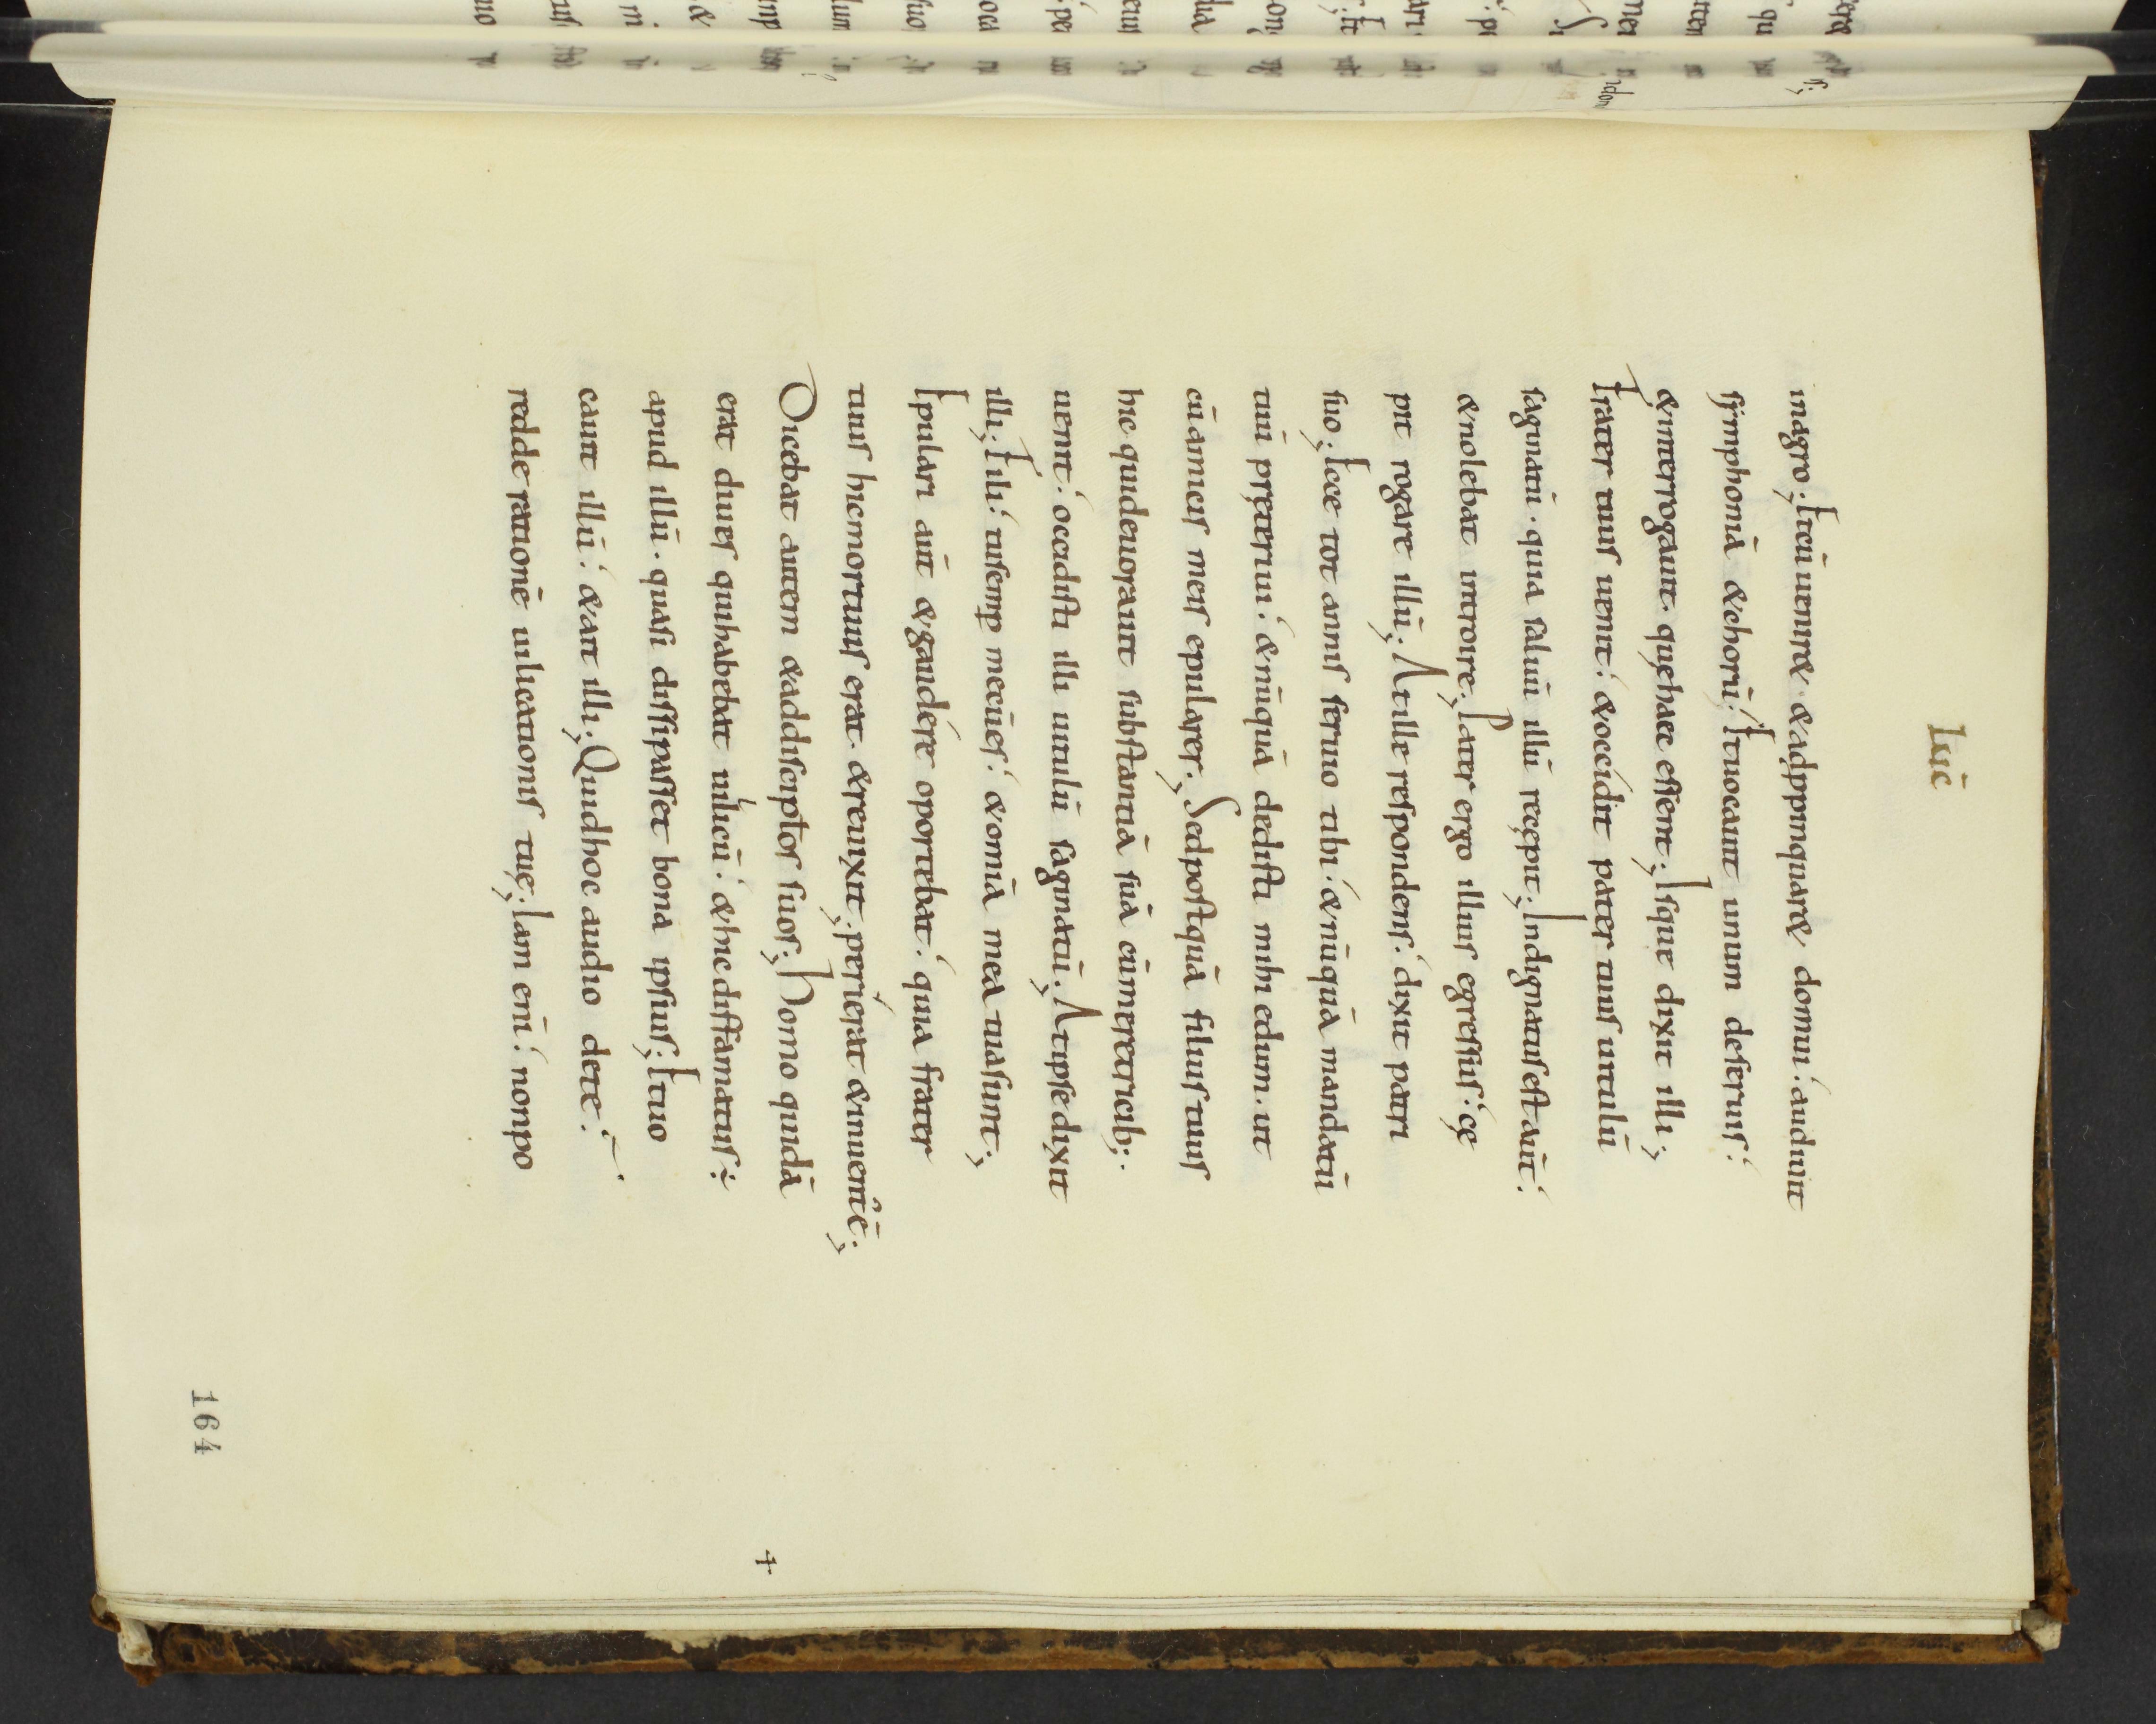 Luc̄
inagro; Etcū uenir& &adppinquar& domui. audiuit
symphoniā &chorū; Etuocauit unum deseruis.
&interrogauit. quęhaec essent; Isque dixit illi;
Frater tuus uenit. &occidit pater tuus uitulū
saginatū. quia saluū illū recępit; Indignatusest aut̄.
&nolebat introire; Pater ergo illius egressus. cę
pit rogare illū; Atille respondens. dixit patri
suo; Ecce tot annis seruo tibi. &nūquā mandatū
tuū pręteriui. &nūquā dedisti mihi edum. ut
cū amicis meis epularer; Sedpostquā filius tuus
hic quideuorauit substantiā suā cūmeretricib;
uenit. occidisti illi uitulū saginatū; Atipse dixit
illi; Fili. tusemp̱ mecūes. &omīa mea tuasunt;
Epulari aut̄ &gaudére oportebat. quia frater
tuus hic mortuus erat. &reuixit; periérat &inuentē;
Dicebat autem &addiscip̄los suos; Homo quidā
erat diues quihabebat uilicū. &hic diffamatus ÷
apud illū. quasi dissipasset bona ipsius; Etuo
cauit illū. &ait illi; Quidhoc audio dete?
redde rationē uilicationis tuę; Iam eni̅. nonpo
164